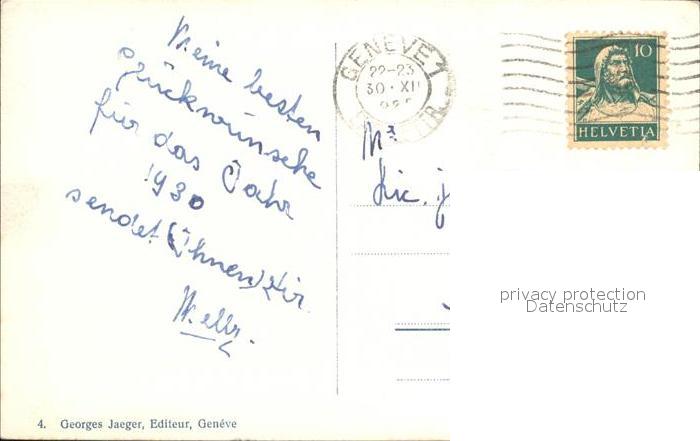 Meine besten
Glückwünsche
für das Jahr
1930
sendet (Ihnen) Dir
GENÈVE 1
22-23
30·XII
10
HELVETIA
Mr
Lic. j
privacy protection
Datenschutz
4. Georges Jaeger, Editeur, Genéve